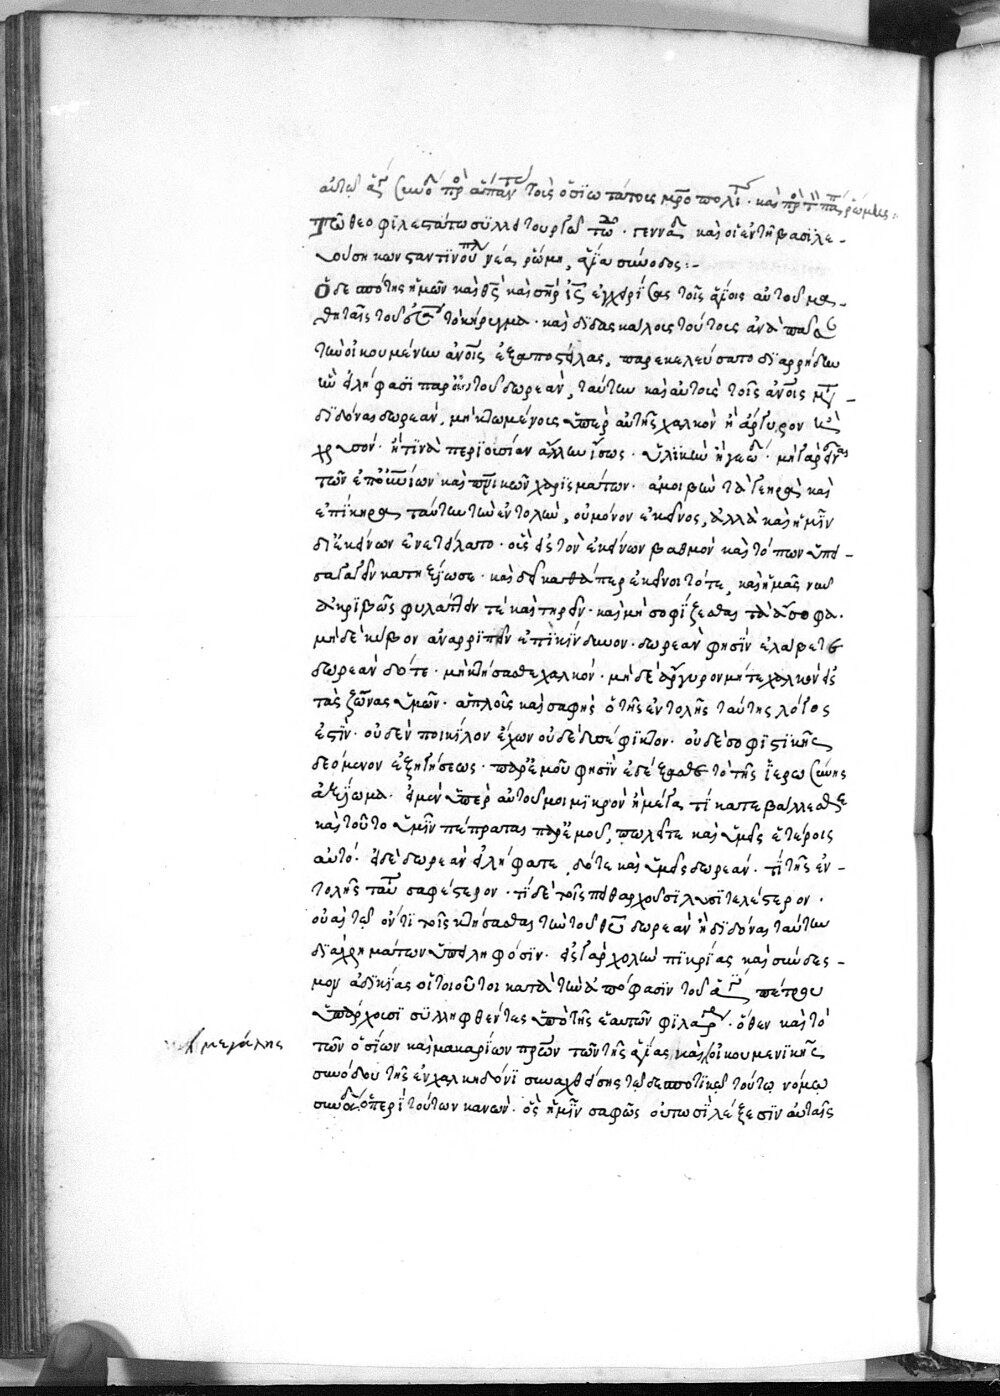 αὐτῆς ἁγί συνόδ πρὸς ἅπαντας τοὺς ὁσιωτάτους μροπολί · καὶ πρὸς τὸν πάπ ῥώμης:
Τῶ θεοφιλεστάτω συλλειτουργῶ γενναδ καὶ ἡ ἐν τῆ βασιλε-
υούση κωνσταντίνου πόλ νέα ῥώμη, ἁγία σύνοδος:-
Ὁ δεσπότης ἡμῶν καὶ θς καὶ σηρ ις ἐγχειρίσας τοῖς ἁγίοις αὐτοῦ μα-
θηταῖς τοῦ σριου τὸ κήρυγμα · καὶ διδασκάλους τούτους ἀνὰ πᾶσαν
τὴν οἰκουμένην ἀνοις ἐξαποστείλας, παρεκελεύσατο διαρρήδην
ἣν εἰλήφασι παρ' αὐτοῦ δωρεὰν, ταύτην καὶ αὐτοὺς τοῖς ἀνοις με-
διδόναι δωρεὰν, μὴ κτωμένοις ὑπὲρ αὐτῆς χαλκὸν ἢ ἄργυρον ἢ
χρυσόν · ἤ τινα περιουσίαν ἄλλην ἴσως · ὑλικὴν ἢ γεώδ · μὴ γὰρ εἶναι
τῶν ἐπουνίων καὶ πνικῶν χαρισμάτων · ἀμοιβὴν τὰ γεηρὰ καὶ
ἐπίκηρα ταύτην τὴν ἐντολὴν, οὐ μόνον ἐκείνοις, ἀλλὰ καὶ ἡμῖν
δι' ἐκείνων ἐνετείλατο · οὓς εἰς τὸν ἐκείνων βαθμὸν καὶ τόπων ὑπει-
σαγαγεῖν κατηξίωσε · καὶ δεῖ καθάπερ ἐκεῖνοι τότε, καὶ ἡμᾶς νῦν
ἀκριβῶς φυλάττειν τὲ καὶ τηρεῖν · καὶ μὴ σοφίζεσθαι τὰ ἄσοφα ·
μηδὲ κύβον ἀναρρίπτειν ἐπικίνδυνον · δωρεὰν φησὶν ἐλάβετε
δωρεὰν δότε · μὴ κτήσασθε χαλκόν · μηδὲ ἄργυρον μήτε χαλκὸν εἰς
τὰς ζώνας ὑμῶν · ἁπλοῦς καὶ σαφὴς ὁ τῆς ἐντολῆς ταύτης λόγος
ἐστὶν · οὐδὲν ποικίλον ἔχων οὐδὲ δυσέφικτον · οὐδὲ σοφιστικῆς
δεόμενον ἐξηγήσεως · παρ' ἐμοῦ φησὶν ἐδέξασθε τὸ τῆς ἱερωσύνης
ἀξίωμα · εἰ μὲν ὑπὲρ αὐτοῦ μοι μικρὸν ἢ μέγα τί κατεβάλλεσθε
καὶ τοῦτο ὑμῖν πέπραται παρ' ἐμοῦ, πωλεῖτε καὶ ὑμεῖς ἑτέροις
αὐτό · εἰ δὲ δωρεὰν εἰλήφατε, δότε καὶ ὑμεῖς δωρεάν · τί τῆς ἐν-
τολῆς ταύ σαφέστερον · τί δὲ τοῖς πειθαρχοῦσι λυσιτελέστερον ·
οὐαὶ τῶ ὄντι τοῖς κτήσασθαι τὴν τοῦ θυ δωρεὰν ἢ διδόναι ταύτην
διὰ χρημάτων ὑπειληφόσιν · εἰς γὰρ χολὴν πικρίας καὶ σύνδεσ-
μον ἀδικίας οἱ τοιοῦτοι κατὰ τὴν ἀπόφασιν τοῦ ἁγί πέτρου
ὑπάρχουσι συλληφθέντες ὑπὸ τῆς ἑαυτῶν φιλαργυρ · ὅθεν καὶ τὸ
τῶν ὁσίων καὶ μακαρίων πρων τῶν τῆς ἁγίας, καὶ οἰκουμενικῆς
μεγάλης
συνόδου τῆς ἐν χαλκηδόνι συναχθείσης τῶ δεσποτικῶ τούτω νόμω
συνάδει ὁ περὶ τούτων κανών · ὃς ἡμῖν σαφῶς οὑτωσὶ λέξεσιν αὐταῖς